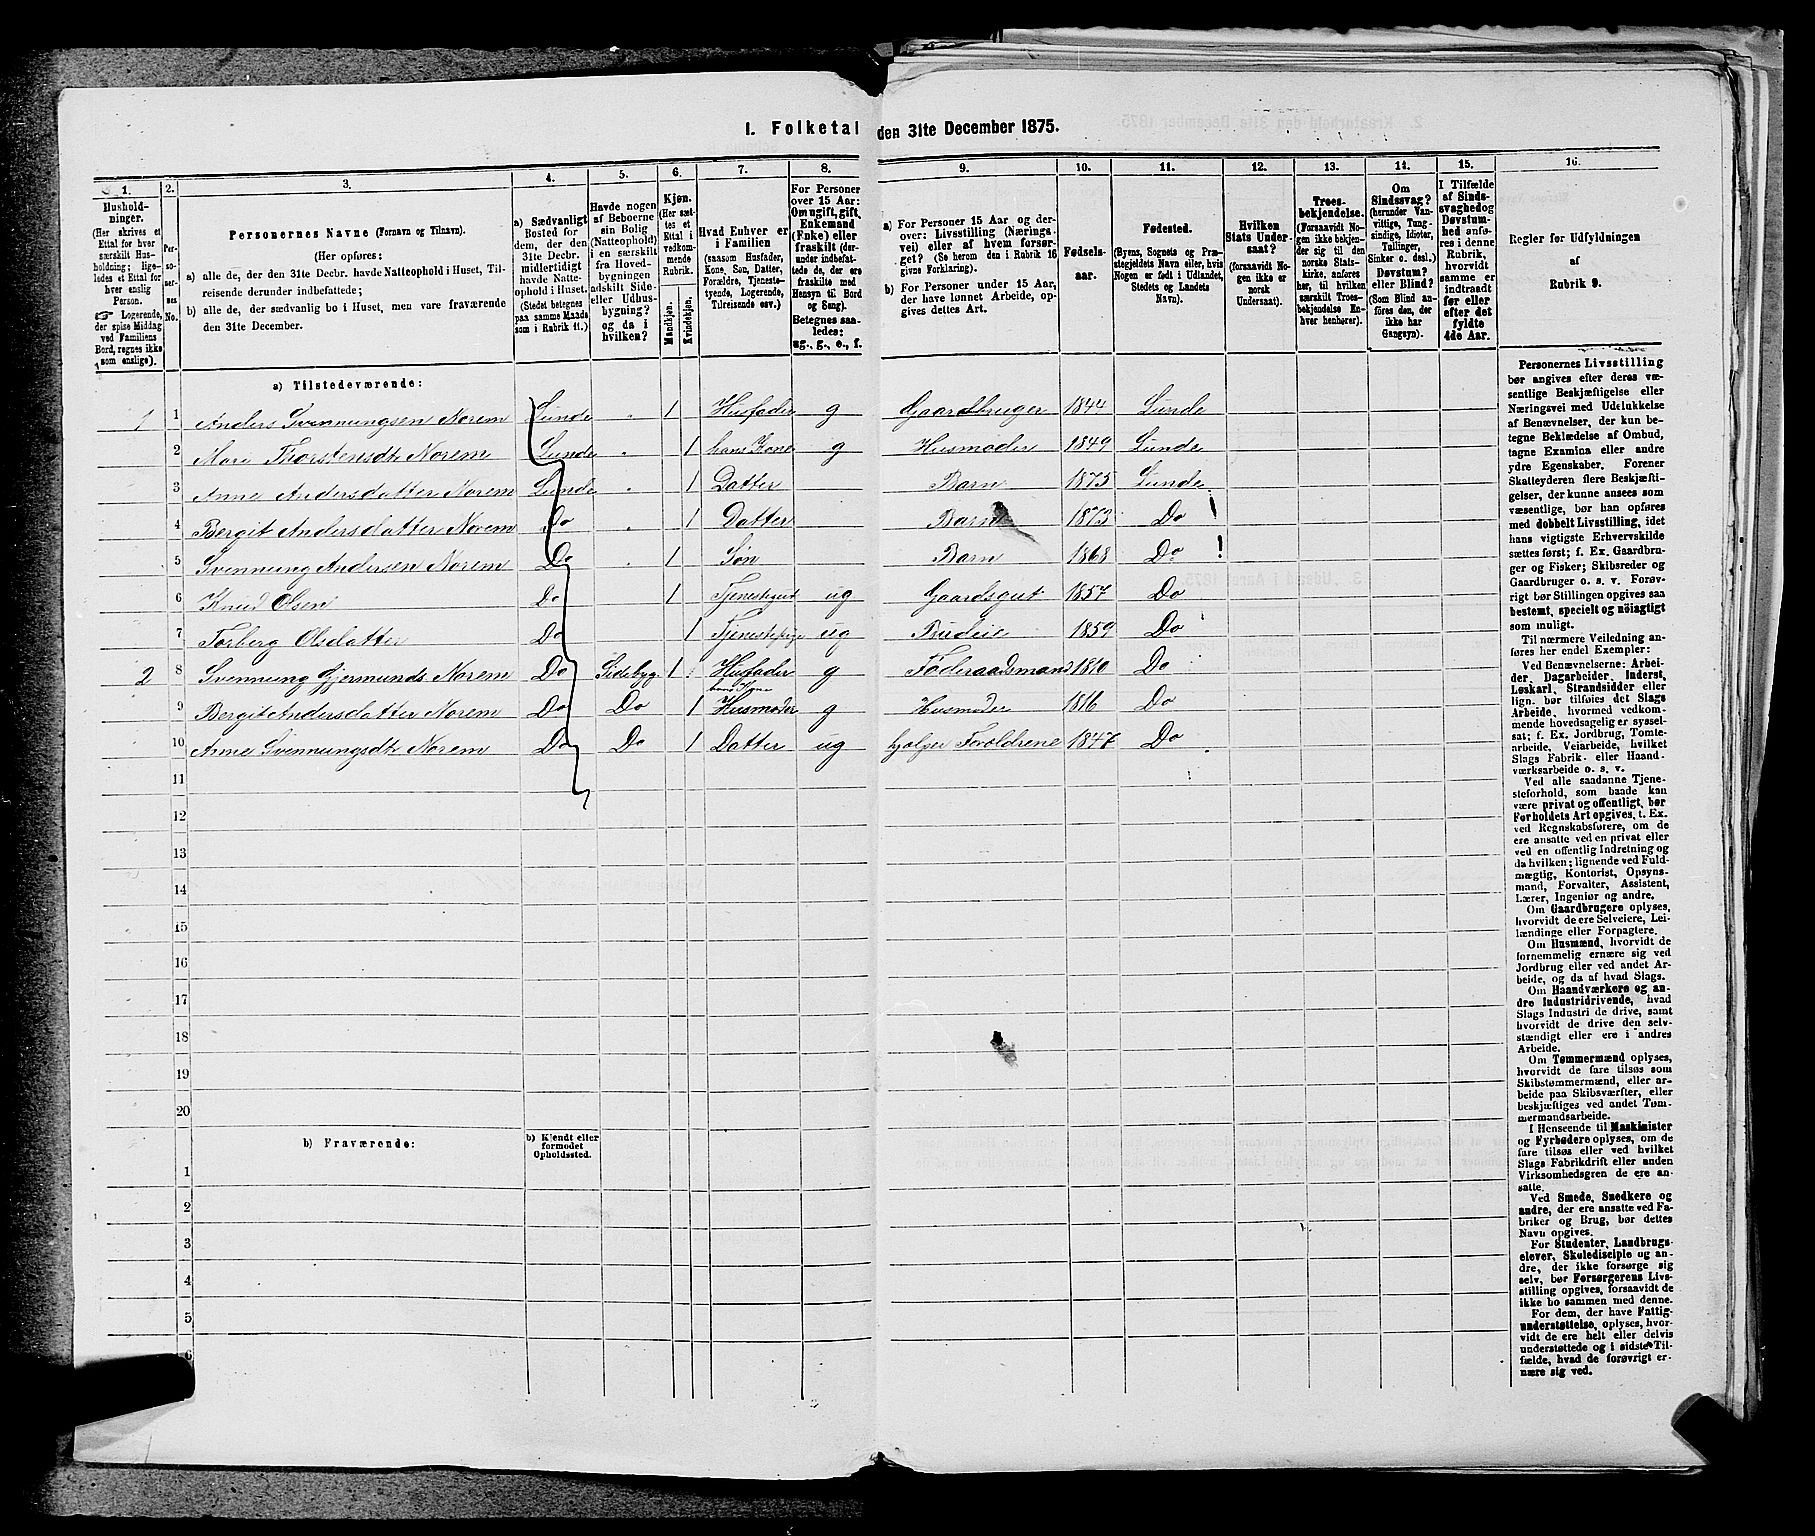 1. Folketal den 31te December 1875.
1.
Hushold-
ninger.
(Her skrives et
Ettal for hver
særskilt Hus-
holdning; lige-
ledes et Ettal for
hver enslig
Person.
☞ Logerende,
der spise Middag
ved Familiens
Bord, regnes ikke
som enslige).
2.
Per-
so-
ner-
nes
No.
3.
Personernes Navne (Fornavn og Tilnavn).
(Her opføres:
a) alle de, der den 31te Decbr. havde Natteophold i Huset, Til-
reisende derunder indbefattede;
b) alle de, der sædvanlig bo i Huset, men vare fraværende
den 31te December.
4.
a) Sædvanligt
Bosted for
dem, der den
31te Decbr.
midlertidigt
havde Natte-
ophold i Huset.
(Stedet betegnes
paa samme Maade
som i Rubrik 11.)
5.
Havde nogen
af Beboerne
sin Bolig
(Natteophold)
i en særskilt
fra Hoved-
bygningen
adskilt Side-
eller Udhus-
bygning?
og da i
hvilken?
6.
Kjøn.
(Her sæt-
tes et
Ettal i
vedkom-
mende
Rubrik.
Mandkjøn.
Kvindekjøn.
7.
Hvad Enhver er
i Familien
(saasom Husfader,
Kone, Søn, Datter,
Forældre, Tjeneste-
tyende, Logerende,
Tilreisende osv.)
8.
For Personer
over 15 Aar:
Om ugift, gift,
Enkemand
(Enke) eller
fraskilt (der-
under indbefat-
tede de, der ere
fraskilte med
Hensyn til Bord
og Seng).
Betegnes saa-
ledes:
ug., g., e., f.
9.
a) For Personer 15 Aar og der-
over: Livsstilling (Nærings-
vei) eller af hvem forsør-
get? (Se herom den i Rubrik 16
givne Forklaring).
b) For Personer under 15 Aar,
der have lønnet Arbeide, op-
gives dettes Art.
10.
Fødsels-
aar.
11.
Fødested.
(Byens, Sognets og Præ-
stegjeldets Navn eller, hvis
Nogen er født i Udlandet,
Stedets og Landets
Navn).
12.
Hvilken
Stats Under-
saat?
(forsaavidt No-
gen ikke er
norsk
Undersaat).
13.
Troes-
bekjendelse.
(Forsaavidt No-
gen ikke bekjen-
der sig til den
norske Stats-
kirke, anføres
her, til hvilken
særskilt Troes-
bekjendelse En-
hver henhører).
14.
Om
Sindssvag?
(herunder Van-
vittige, Tung-
sindige, Idioter,
Tullinger,
Sinker o. desl.)
Døvstum?
eller Blind?
(Som Blind an-
føres den, der
ikke har
Gangsyn).
15.
I Tilfælde
af Sinds-
svaghed og
Døvstum-
hed anfø-
res i denne
Rubrik,
hvorvidt
samme er
indtraadt
før eller
efter det
fyldte
4de Aar.
16.
Regler for Udfyldningen
af
Rubrik 9.
a) Tilstedeværende:
1 1 Anders Svennungsen Norem Lunde " 1 Husfader g Gaardbruger 1844 Lunde
2 Mari Thorstensdtr Norem Lunde " 1 hans Kone g Husmoder 1849 Lunde
3 Anne Andersdatter Norem Lunde " 1 Datter Barn 1875 Lunde
4 Bergit Andersdatter Norem Do " 1 Datter Barn 1873 Do
5 Svennung Andersen Norem Do " 1 Søn Barn 1868 Do
6 Knud Olsen Do 1 Tjenestegut ug Gaardsgut 1857 Do
7 Torberg Olsdatter Do 1 Tjenestepige ug Budeie 1859 Do
2 8 Svennung Gjermunds Norem Do Sidebyg 1 Husfader g Føderaadsmand 1810 Do
9 Bergit Andersdatter Norem Do Do 1 hans Kone Husmoder g Husmoder 1816 Do
10 Anne Svennungsdtr Norem Do Do 1 Datter ug hjelper Forældrene 1847 Do
11
12
13
14
15
16
17
18
19
20
b) Fraværende:
b) Kjendt eller
formodet
Opholdssted.
1
2
3
4
5
6
Personernes Livsstilling
bør angives efter deres væ-
sentlige Beskjæftigelse eller
Næringsvei med Udelukkelse
af Benævnelser, der kun be-
tegne Beklædelse af Ombud,
tagne Examina eller andre
ydre Egenskaber. Forener
Skatteyderen flere Beskjæfti-
gelser, der kunne ansees som
væsentlige, bør han opføres
med dobbelt Livsstilling, idet
hans vigtigste Erhvervskilde
sættes først; f. Ex. Gaardbru-
ger og Fisker; Skibsreder og
Gaardbruger o. s. v. Forøv-
rigt bør Stillingen opgives saa
bestemt, specielt og nøiagtigt
som muligt.
Til nærmere Veiledning an-
føres her endel Exempler:
Ved Benævnelserne: Arbei-
der, Dagarbeider, Inderst,
Løskarl, Strandsidder eller
lign. bør tilføies det Slags
Arbeide, hvormed vedkom-
mende hovedsagelig er syssel-
sat; f. Ex. Jordbrug, Tomte-
arbeide, Veiarbeide, hvilket
Slags Fabrik- eller Haand-
værksarbeide o. s. v.
Ved alle saadanne Tjene-
steforhold, som baade kan
være privat og offentligt, bør
Forholdets Art opgives, t. Ex.
ved Regnskabsførere, om de
ere ansatte ved en privat eller
ved en offentlig Indretning og
da hvilken; lignende ved Fuld-
mægtig, Kontorist, Opsyns-
mand, Forvalter, Assistent,
Lærer, Ingeniør og andre.
Om Gaardbrugere oplyses,
hvorvidt de ere Selveiere, Lei-
lændinge eller Forpagtere.
Om Husmænd, hvorvidt de
fornemmelig ernære sig ved
Jordbrug eller ved andet Ar-
beide, og da af hvad Slags.
Om Haandværkere og an-
dre Industridrivende, hvad
Slags Industri de drive, samt
hvorvidt de drive den selv-
stændigt eller ere i andres
Arbeide.
Om Tømmermænd oplyses,
hvorvidt de fare tilsøs som
Skibstømmermænd, eller ar-
beide paa Skibsværfter, eller
beskjæftiges ved andet Tøm-
mermandsarbeide.
I Henseende til Maskinister
og Fyrbødere oplyses, om de
fare tilsøs eller ved hvilket
Slags Fabrikdrift eller anden
Virksomhedsgren de ere an-
satte.
Ved Smede, Snedkere og
andre, der ere ansatte ved Fa-
briker og Brug, bør dettes
Navn opgives.
For Studenter, Landbrugs-
elever, Skoledisciple og an-
dre, der ikke forsørge sig
selv, bør Forsørgerens Livs-
stilling opgives, forsaavidt de
ikke bo sammen med denne.
For dem, der have Fattig-
understøttelse, oplyses, hvor-
vidt de ere helt eller delvis
understøttede og i sidste Til-
fælde, hvad de forøvrigt er-
nære sig ved.